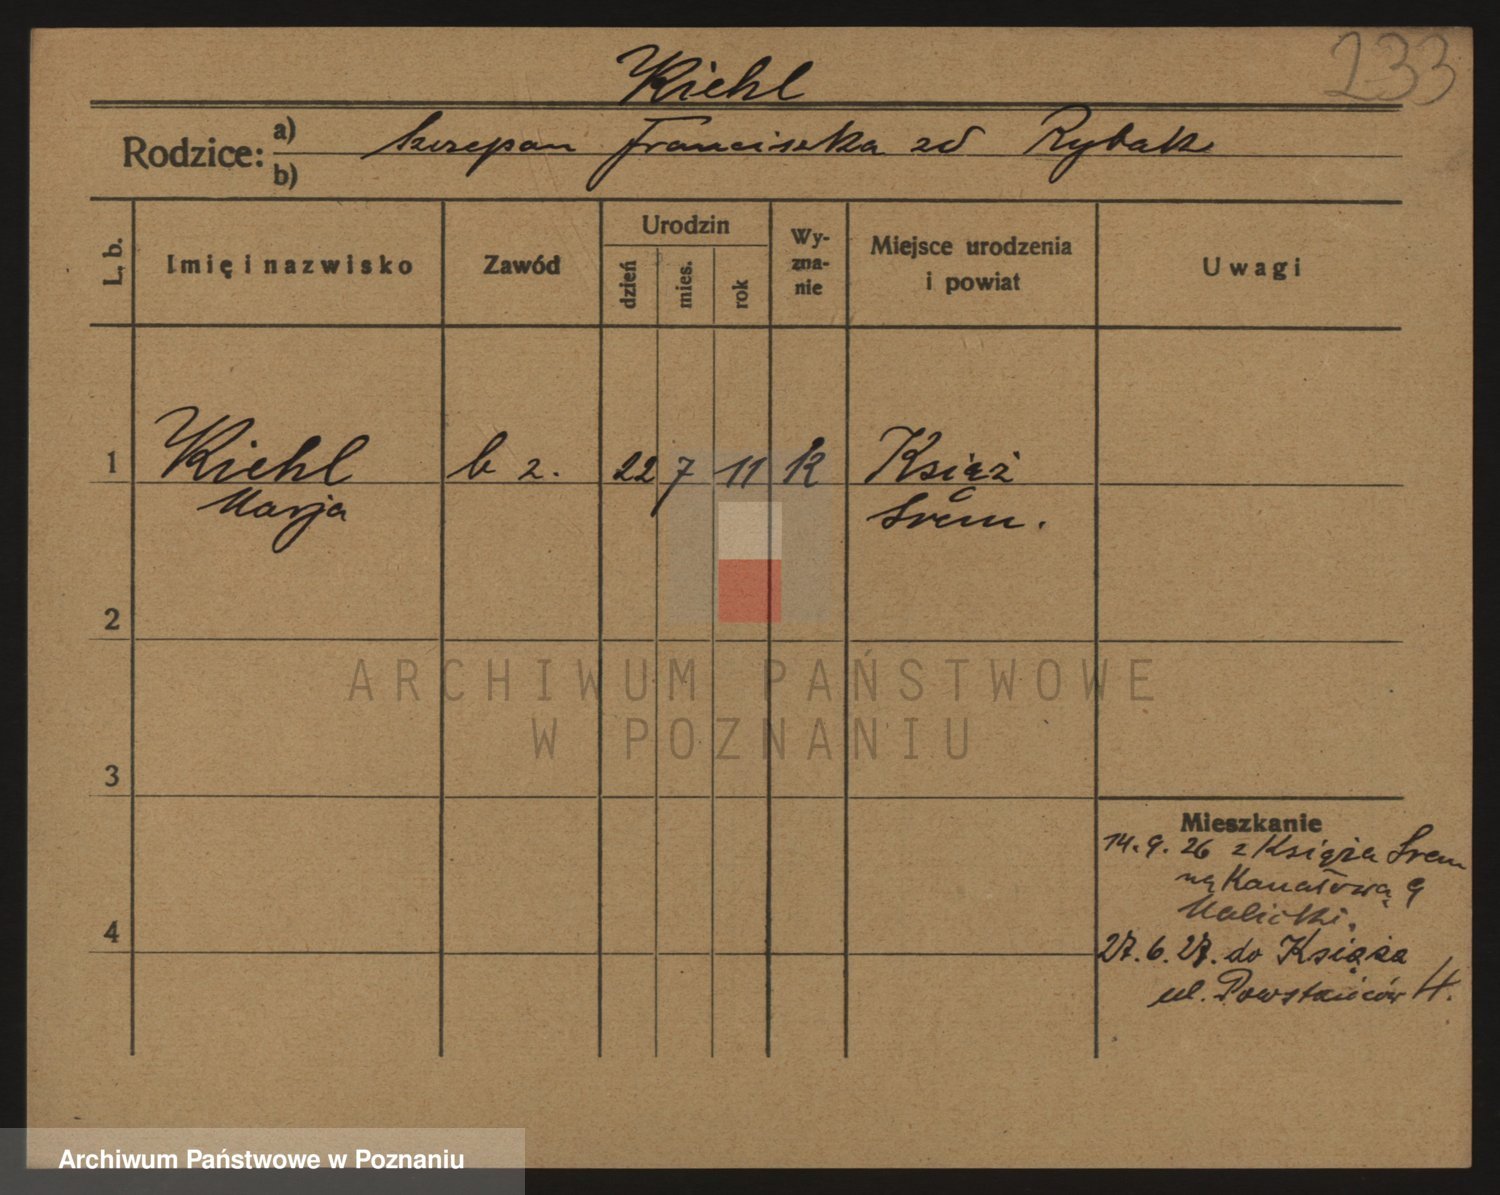 233
Kiehl
Rodzice: a) Szczepan Franciszka zd Rybak
b)
L. b.
Imię i nazwisko
Zawód
Urodzin
dzień
mies.
rok
Wy-
zna-
nie
Miejsce urodzenia
i powiat
Uwagi
1 Kiehl b z. 22 7 11 k Książ
Marja Srem.
2
3
4
Mieszkanie
14. 9. 26 z Książa Srem
na Kanałową 9
27. 6. 27. do Książa
ul. Powstańców 4.
ARCHIWUM PAŃSTWOWE
W POZNANIU
Archiwum Państwowe w Poznaniu